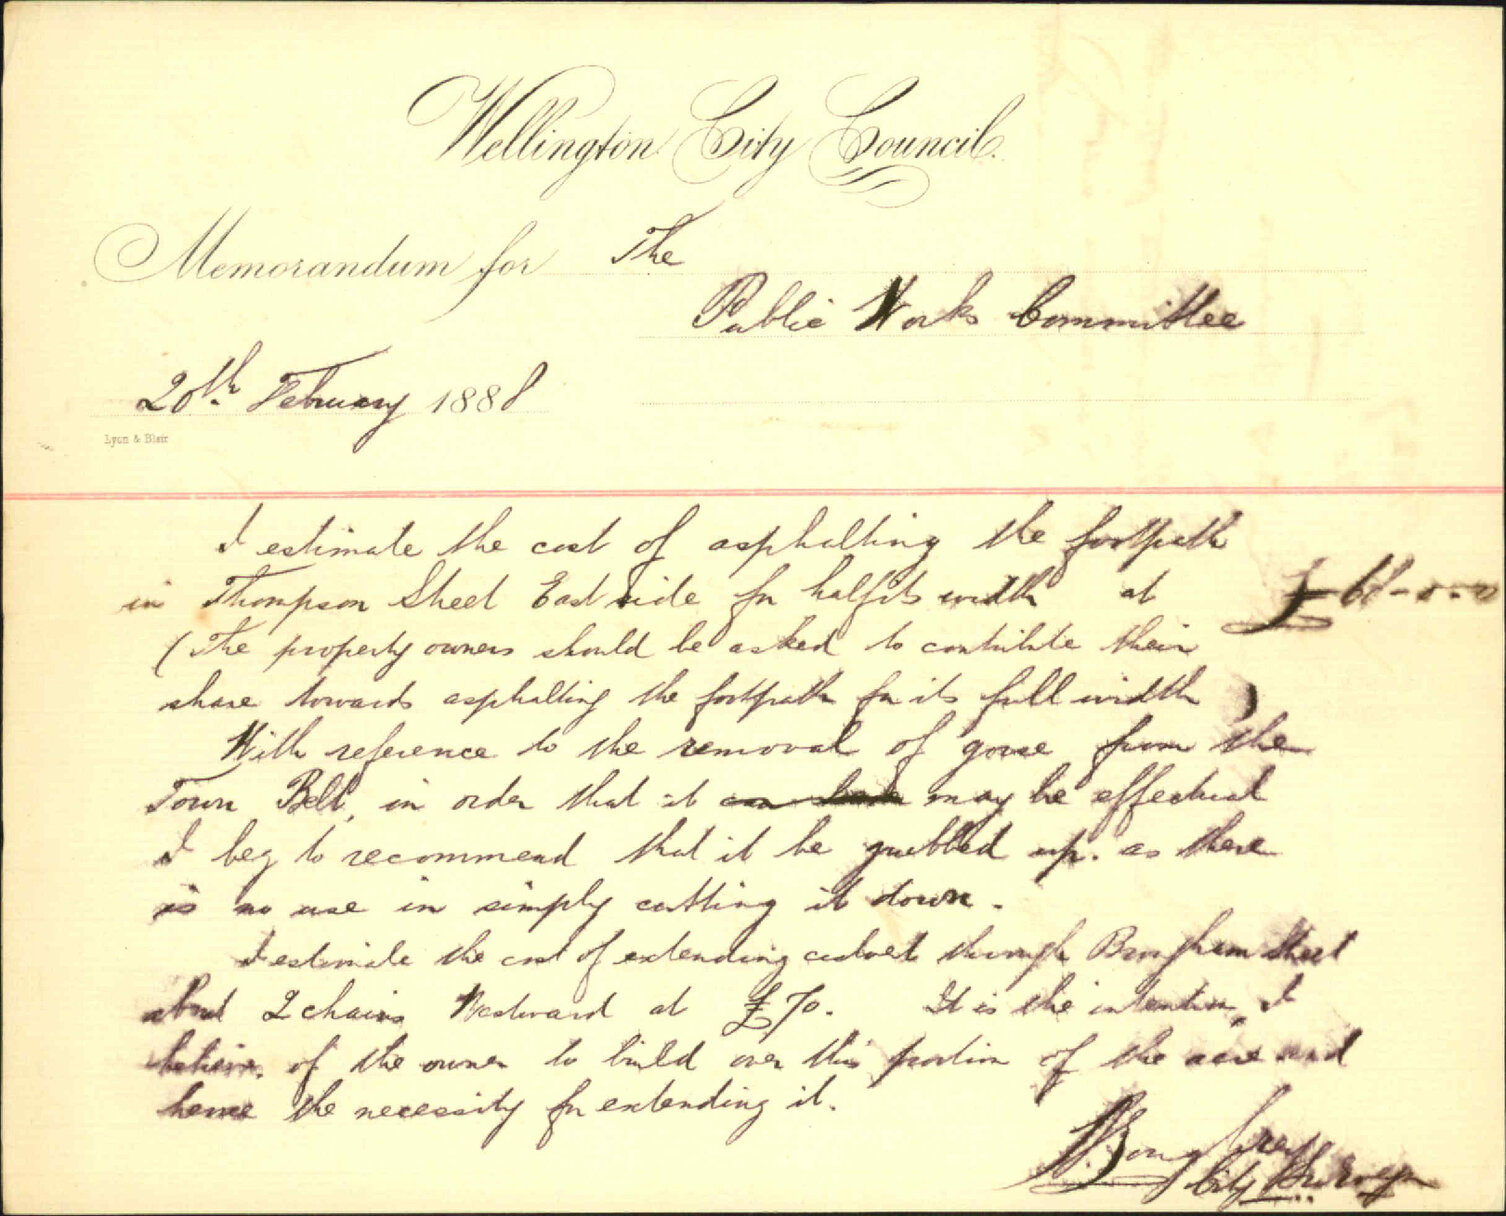 Wellington City Council.
Memorandum for The
Public Works Committee
20th February 1888
Lyon & Blair
I estimate the cost of asphalting the footpath
in Thompson Street East side for half its width at
(The property owners should be asked to contribute their
share towards asphalting the footpath for its full width)
With reference to the removal of gorse from the
Town Belt, in order that it may be effectual
I beg to recommend that it be grubbed up. as there
is no use in simply cutting it down.
I estimate the cost of extending culvert through Street
about 2 chains Westward at £70. It is the intention, I
believe, of the owner to build over this portion of the acre and
hence the necessity for extending it.
City Surveyor